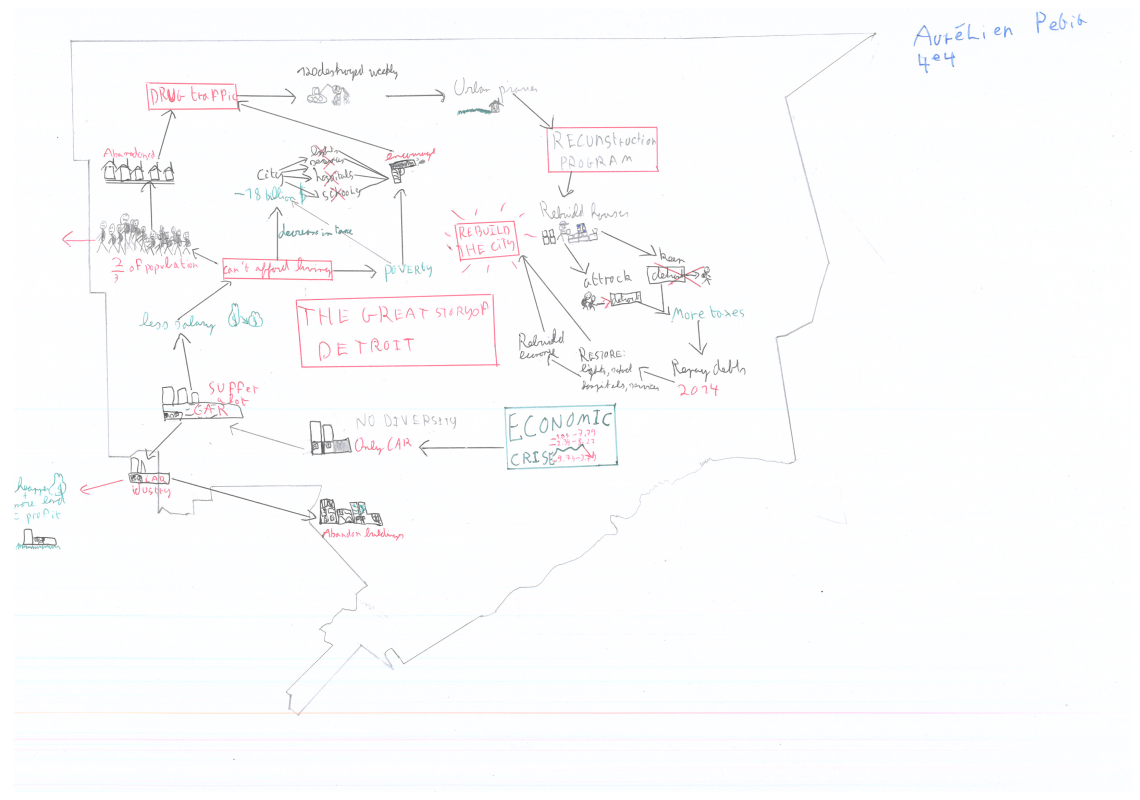 Aurélien Pebia
4e4
120 destroyed weekly
DRUG traffic
Urban prairies
RECONSTRUCTION
PROGRAM
Abandoned
City
hospitals
schools
encourage
-18 billion $
decrease in taxe
2/3 of population
can't afford living
POVERTY
Rebuild houses
REBUILD
THE CITY
keep
detroit
attrack
detroit
More taxes
THE GREAT STORY OF
DETROIT
less salary
Rebuild
economy
RESTORE:
lights, school
hospitals, services
Repay debts
2014
SUFFER
a lot
CAR
NO DIVERSITY
Only CAR
ECONOMIC
CRISE
CAR
idustry
cheaper
+
more land
= profit
Abandon buildings